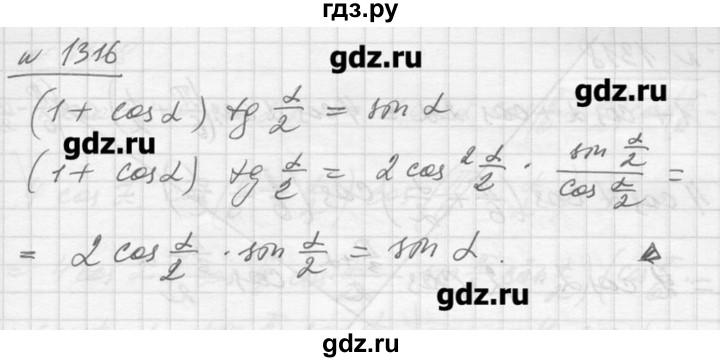 гдз.ру
№ 1316
gdz.ru
(1 + cos α) tg α/2 = sin α
gdz.ru
gdz.ru
(1 + cos α) tg α/2 = 2 cos² α/2 · sin α/2 / cos α/2 =
= 2 cos α/2 · sin α/2 = sin α.
gdz.ru